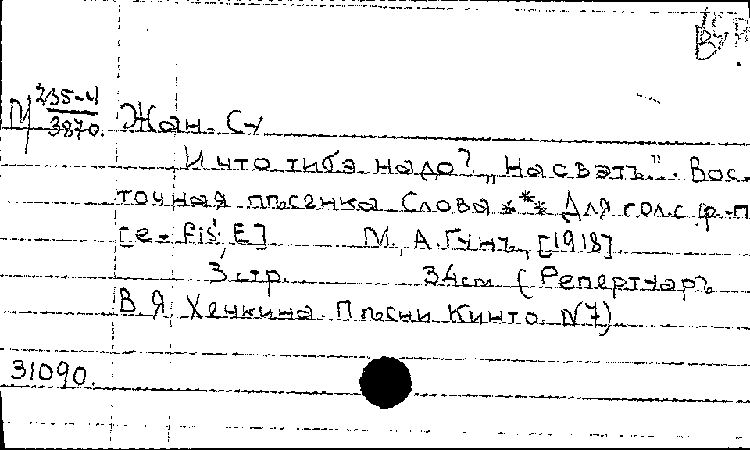 М 235-4
3870.
Жан. С-у
И что тибэ надо? „Насвэтъ“. Вос-
точная пѣсенка Слова *** Для гол. с ф.-п
[e-fis', E] М., А. Гунъ, [1918]
3 стр. 34 см (Репертуаръ
В. Я. Хенкина Пѣсни Кинто. N 7)
31090.